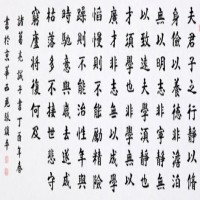 夫君子之行靜以修
身儉以養德非澹泊
無以明志非寧靜無
以致遠夫學須靜也
才須學也非學無以
廣才非志無以成學
慆慢則不能勵精險
躁則不能治性年與
時馳意與歲去遂成
枯落多不接世悲守
窮廬將復何及
諸葛亮誡子書丁酉年春
書於京華西苑